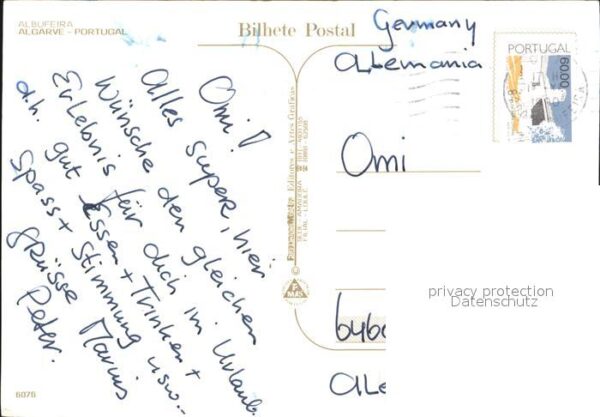 ALBUFEIRA
ALGARVE - PORTUGAL
Bilhete Postal
Germany
Alemania
PORTUGAL
60.00
Omi!
Alles super, hier
Wünsche den gleichen
Erlebnis für dich im Urlaub.
d.h. gut Essen + Trinken +
Spass + Stimmung usw..
grüsse Marius
Peter.
Omi
Editores e Artes Gráficas
©
MAS
privacy protection
Datenschutz
ALE
6076